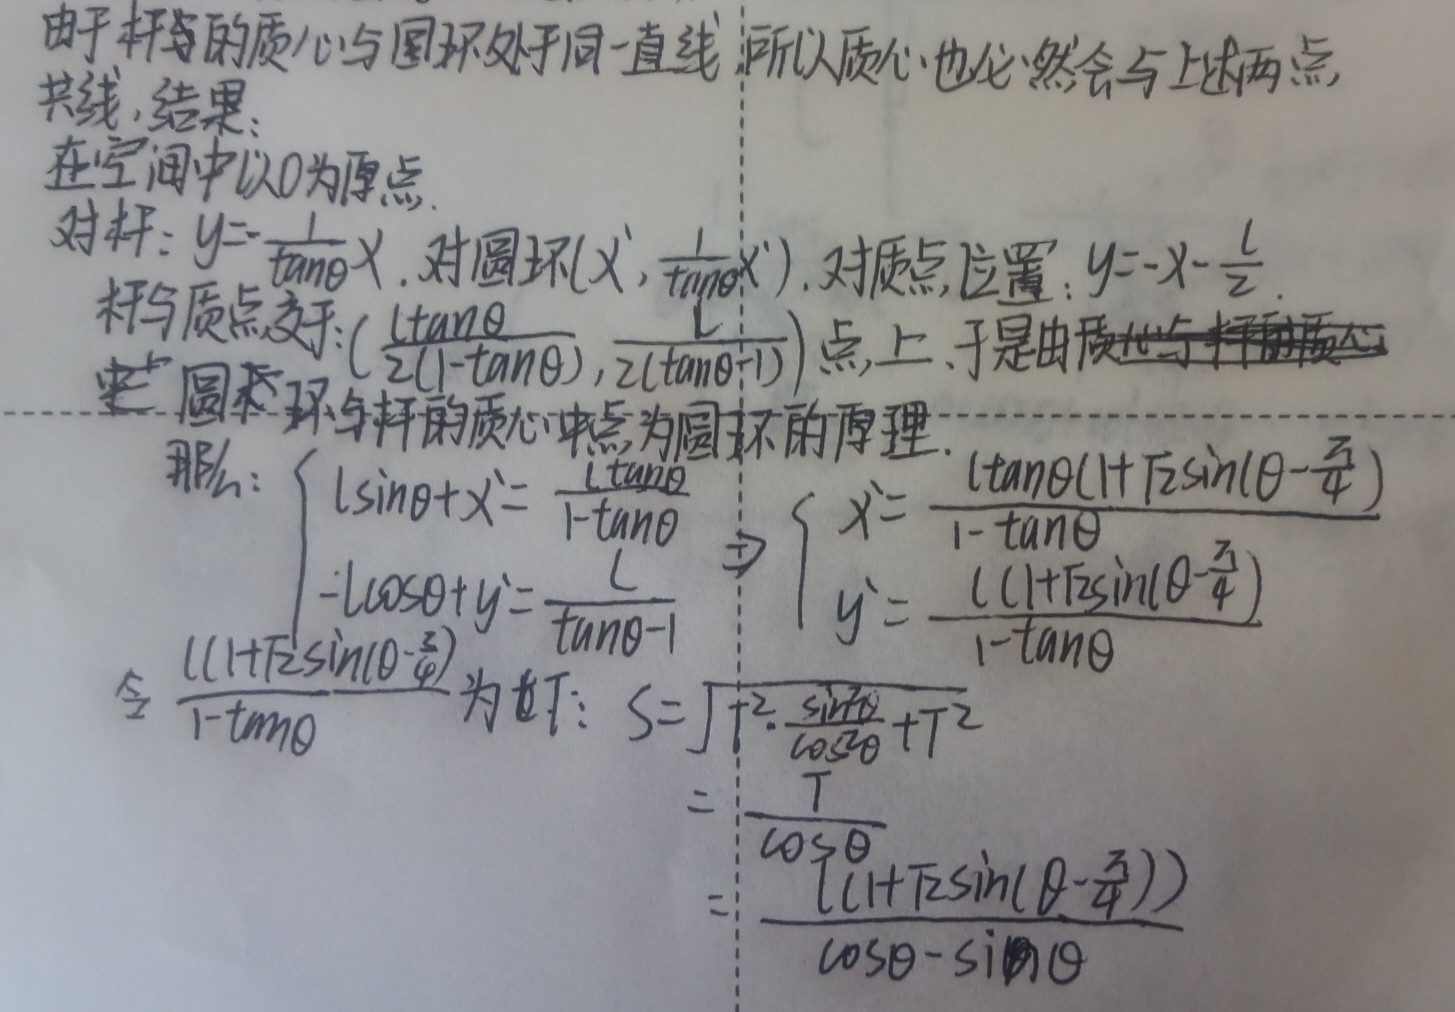 由于杆的质心与圆环处于同一直线,所以质心也必然会与上述两点
共线,结果:
在空间中以O为原点.
对杆: y=-\frac{1}{tanθ}x. 对圆环(x', \frac{1}{tanθ}x'). 对质点位置: y=-x-\frac{l}{2}.
杆与质点交于: (\frac{ltanθ}{2(1-tanθ)}, \frac{L}{2(tanθ-1)})点上.于是由
圆环与杆的质心中点为圆环的原理.
那么: \begin{cases} lsinθ+x'=\frac{ltanθ}{1-tanθ} \\ -lcosθ+y'=\frac{L}{tanθ-1} \end{cases} ⇒ \begin{cases} x'=\frac{ltanθ(1+\sqrt{2}sin(θ-\frac{π}{4})}{1-tanθ} \\ y'=\frac{l(1+\sqrt{2}sin(θ-\frac{π}{4})}{1-tanθ} \end{cases}
令\frac{l(1+\sqrt{2}sin(θ-\frac{π}{4})}{1-tanθ}为T: S=\sqrt{T^2·\frac{sin^2θ}{cos^2θ}+T^2}
=\frac{T}{cosθ}
=\frac{l(1+\sqrt{2}sin(θ-\frac{π}{4}))}{cosθ-sinθ}